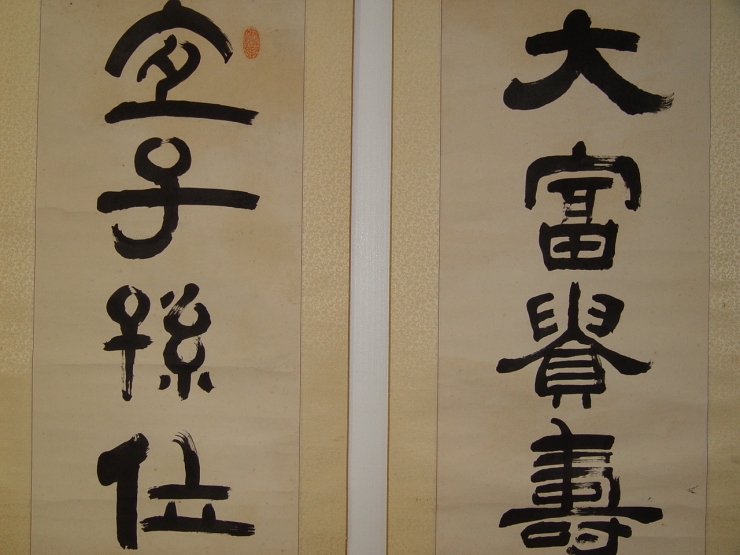 大富貴壽
宜子孫位